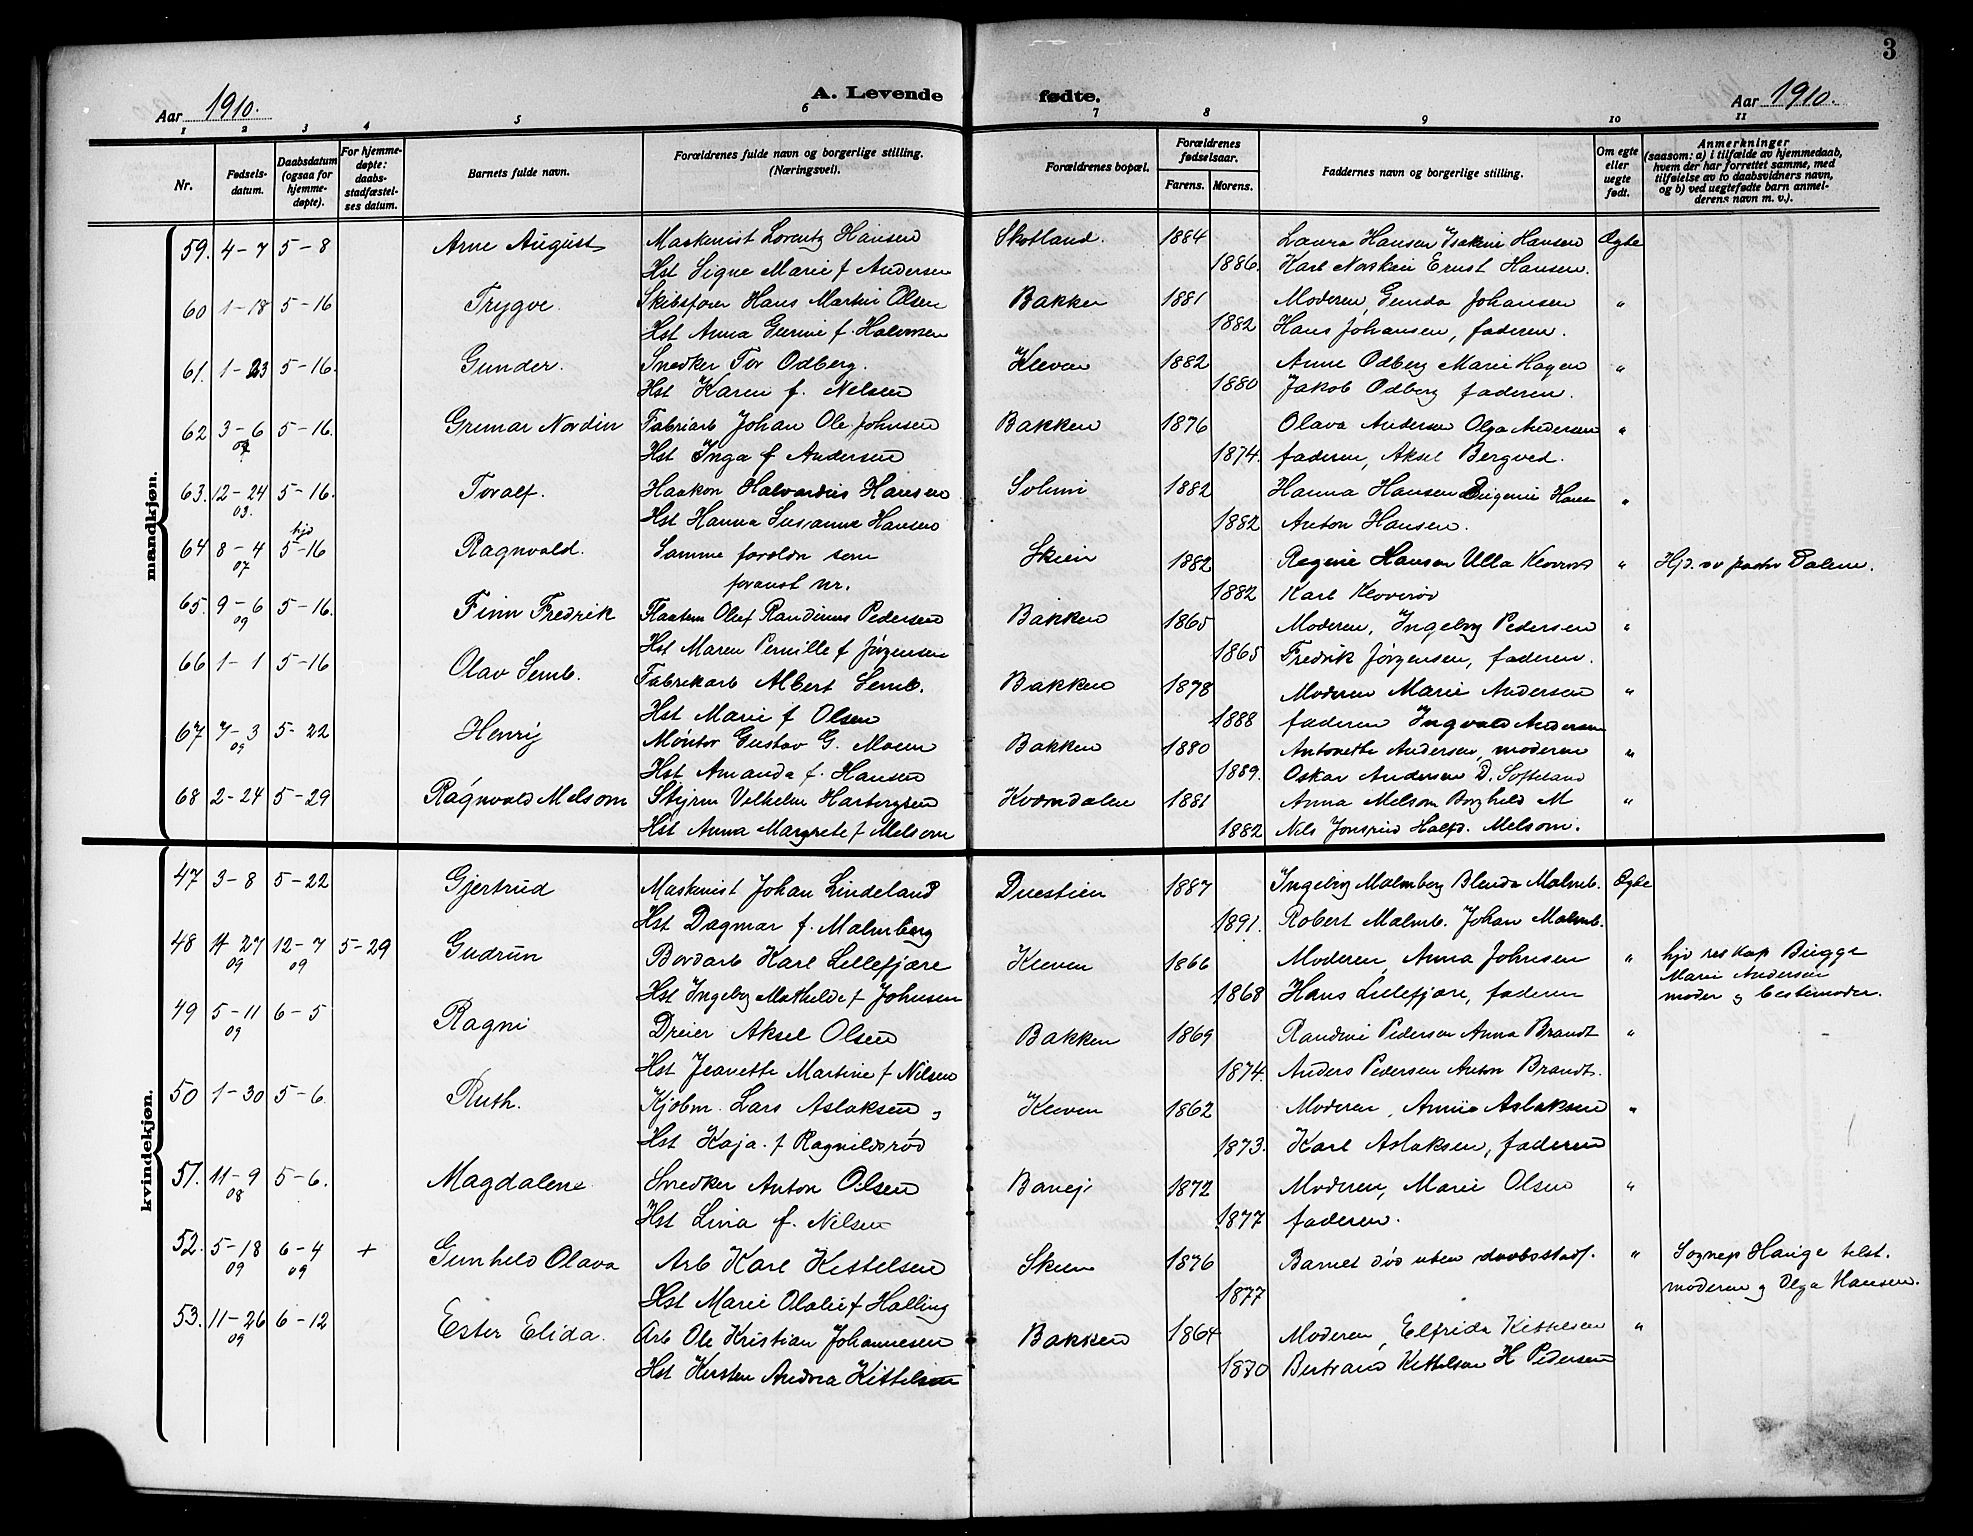 3
Aar 1910. A. Levende fødte. Aar 1910.
1 2 3 4 5 6 7 8 9 10 11
Nr. Fødsels-datum. Daabsdatum (ogsaa for hjemme-døpte). For hjemme-døpte: daabs-stadfæstel-ses datum. Barnets fulde navn. Forældrenes fulde navn og borgerlige stilling. (Næringsvei). Forældrenes bopæl. Forældrenes fødselsaar. Farens. Morens. Faddernes navn og borgerlige stilling. Om egte eller uegte født. Anmerkninger (saasom: a) i tilfælde av hjemmedaab, hvem der har forrettet samme, med tilføielse av to daabsvidners navn, og b) ved uegtefødte barn anmel-derens navn m. v.).
mandkjøn.
59. 4-7 5-8 Arne August Maskinist Lorentz Hansen Skotland. 1884 Laura Hansen Isakine Hansen Ægte
Hst Signe Marie f Andersen 1886. Karl Ernst Hansen.
60 1-18 5-16 Trygve. Skibsfører Hans Martin Olsen Bakken 1881 Moderen, Gunda Johansen "
Hst Anna Gurine f. Halvorsen 1882 Hans Johansen, faderen.
61. 1-23 5-16. Gunder. Snedker Tor Odberg. Kleven 1882 Anne Odberg Marie Hagen "
Hst Karen f. Nelsen 1880 Jakob Odberg faderen.
62 3-6 5-16. Gunnar Nordin Fabriarb Johan Ole Johnsen Bakken 1876 Olava Andersen Olga Andersen "
Hst Inga f Andersen 1874. faderen, Aksel Bergved.
63. 12-24 03. 5-16. Toralf. Haakon Halvardius Hansen Solum 1882 Hanna Hansen Eugenie Hansn "
Hst Hanna Susanne Hansen 1882 Anton Hansen.
64 8-4 07 hjd 5-16 Ragnvald. Samme foreldr som Skien 1882 Regine Hansen Ulla "  Hjd. av pastor Dalen.
foranst nr. 1882 Karl Kloverød
65. 9-6 09 5-16. Finn Fredrik Flaatem Olef Randinius Pedersen Bakken 1865 Moderen, Ingeborg Pedersen "
Hst Maren Pernille f Jørgensen 1865 Fredrik Jørgensen, faderen.
66 1-1 5-16 Olav Semb. Fabrikarb Albert Semb. Bakken 1878 Moderen Marie Andersen "
Hst Marie f Olsen 1888 faderen Ingvald Andersen
67 7-3 09 5-22 Henry Møntør Gustav G. Moen Bakken 1880 Antonette Andersen, moderen "
Hst Amanda f. Hansen 1889. Oskar Andersen D. Softeland
68 2-24 5-29 Ragnvald Melsom Styrm Vilhelm Harbergsen Kvomdalen 1881 Anna Melsom Borghild M "
Hst Anna Margrete f Melsom 1882 Nils Halfd. Melsom.
kvindekjøn.
47 3-8 5-22 Gjertrud Maskinist Johan Lindeland Duestien 1887 Ingeborg Malmberg Blenda Malmb. Ægte
Hst Dagmar f. Malmberg 1891. Robert Malmb. Johan Malmb.
48 11-27 09 12-7 09 5-29 Gudrun Bordarb Karl Lillefjære Kleven 1866 Moderen, Anna Johnsen " hjd res kap Bugge
Marie Andersen
Hst Ingeborg Mathilde f Johnsen 1868 Hans Lillefjære, faderen moder og bestemoder.
49 5-11 09 6-5 Ragni Dreier Aksel Olsen Bakken 1869 Randine Pedersen Anna Brandt "
Hst Jeanette Martine f Nilsen 1874. Anders Pedersen Anton Brandt.
50 1-30 5-6. Ruth. Kjøbm. Lars Aslaksen, Kleven 1862 Moderen, Annie Aslaksen "
Hst Kaja. f Ragnildsrød 1873. Karl Aslaksen, faderen
51. 11-9 08 5-6. Magdalene Snedker Anton Olsen 1872 Moderen, Marie Olsen "
Hst Lina f. Nilsen 1877 faderen.
52. 5-18 09 6-4 09 + Gunhild Olava Arb Karl Kittelsen Skien 1876 Barnet død uten daabsstadf. " Sognep Hauge telst.
Hst Marie Olalie f Halling 1877 moderen og Olga Hansen.
53. 11-26 09 6-12 Ester Elida. Arb Ole Kristian Johannesen Bakken 1864 Moderen, Elfrida Kittelsen "
Hst Kirsten Andrea Kittelsen 1870 Bertrand Kittelsen H Pedersen